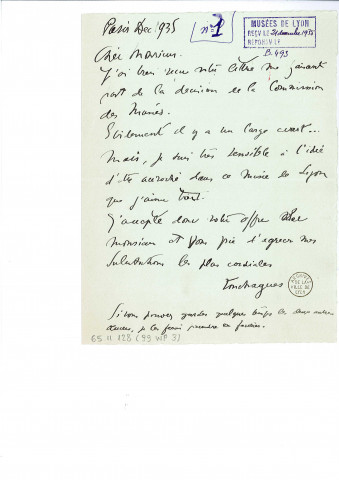 Paris Dec 1935
n° 1
MUSÉES DE LYON
REÇU LE 31 décembre 1935
RÉPONDU LE
B. 493
Cher Monsieur.
J'ai bien reçu votre lettre me faisant
part de la décision de la Commission
des Musées.
Evidemment il y a un large écart...
Mais, je suis très sensible à l'idée
d'être accroché dans ce Musée de Lyon
que j'aime tant.
J'accepte donc votre offre cher
Monsieur et vous prie d'agréer mes
salutations les plus cordiales
Touchagues
ARCHIVES
DE LA
VILLE DE
LYON
Si vous pouvez garder quelque temps les deux autres
, je les ferai prendre en Janvier.
65 II 128 (99 WP 3)